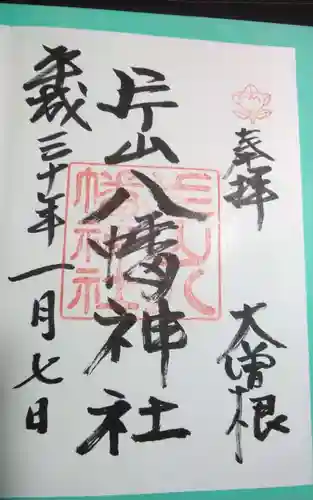 奉拝
大曽根
片山八幡神社
片山八幡神社
平成三十年一月七日